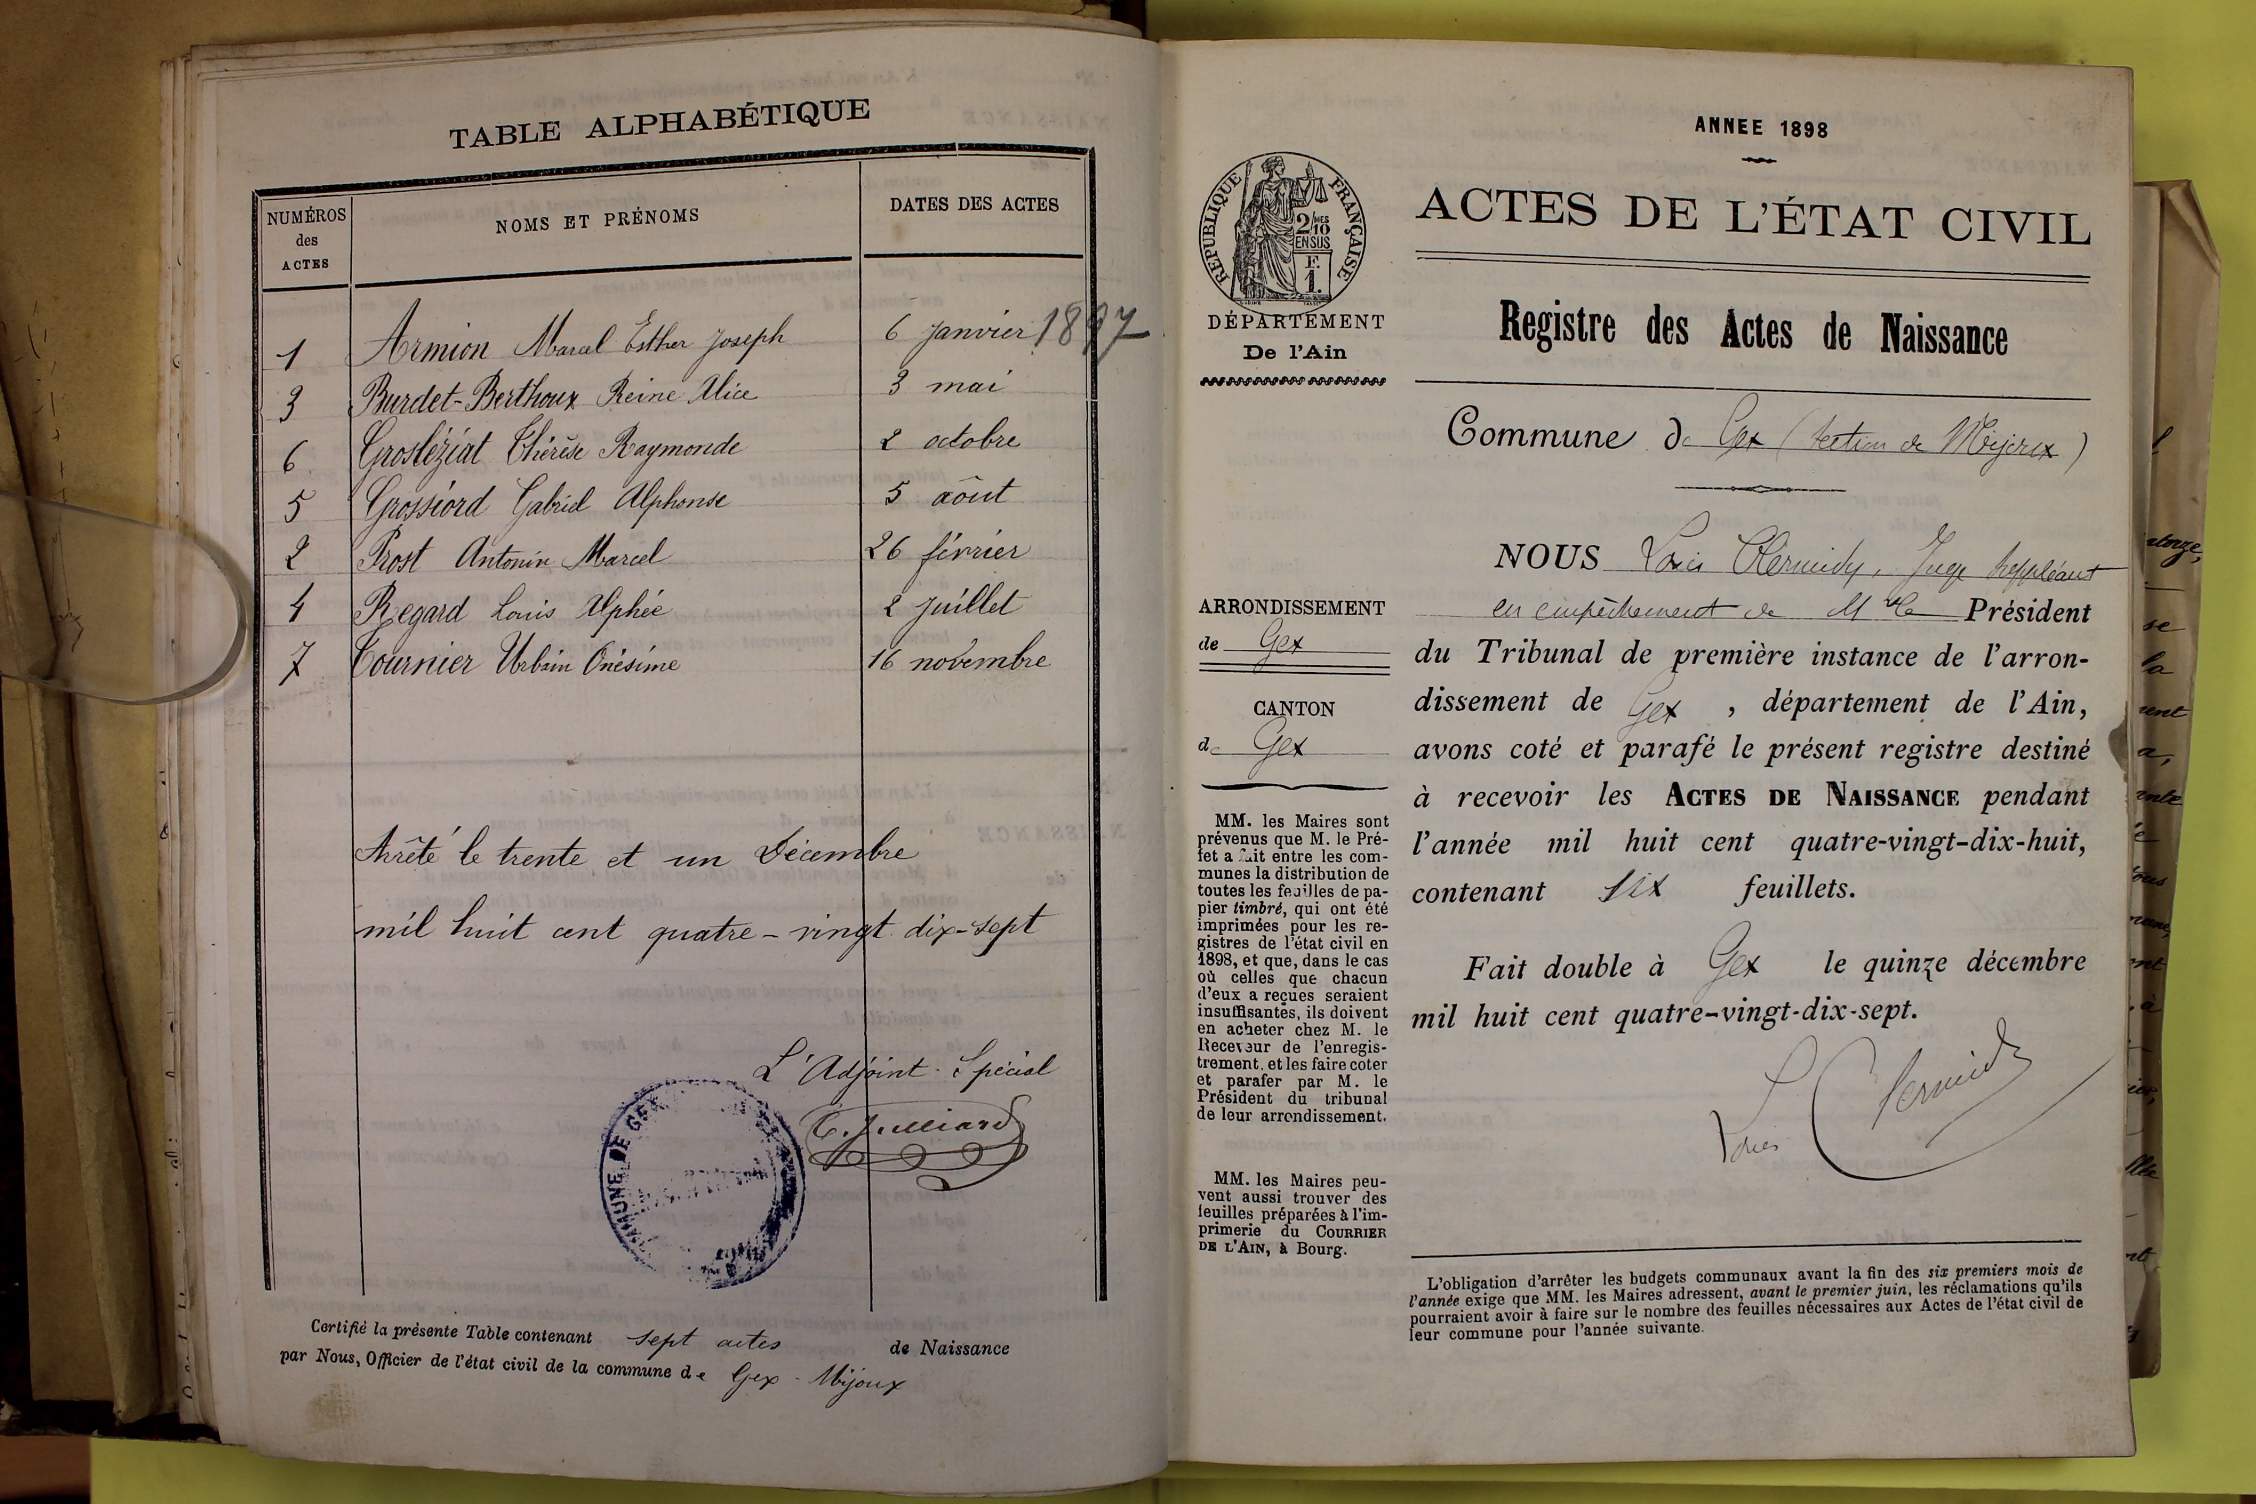 TABLE ALPHABÉTIQUE
NUMÉROS des ACTES NOMS ET PRÉNOMS DATES DES ACTES
1 Armion Marcel Esther Joseph 6 Janvier 1897
3 Burdet-Berthoux Reine Alice 3 mai
6 Grosléziat Thérèse Raymonde 2 octobre
5 Grossiord Gabriel Alphonse 5 aôut
2 Prost Antonin Marcel 26 février
4 Regard Louis Alphée 2 Juillet
7 Tournier Urbain Onésime 16 novembre
Arrêté le trente et un Décembre
mil huit cent quatre-vingt dix-sept
L'Adjoint Spécial
C. Julliard
COMMUNE DE GEX
Certifié la présente Table contenant sept actes de Naissance
par Nous, Officier de l'état civil de la commune de Gex - Mijoux
ANNEE 1898
RÉPUBLIQUE FRANÇAISE
2/10MES
EN SUS
F.
1.
DÉPARTEMENT
De l'Ain
ARRONDISSEMENT
de Gex
CANTON
de Gex
MM. les Maires sont
prévenus que M. le Pré-
fet a fait entre les com-
munes la distribution de
toutes les feuilles de pa-
pier timbré, qui ont été
imprimées pour les re-
gistres de l'état civil en
1898, et que, dans le cas
où celles que chacun
d'eux a reçues seraient
insuffisantes, ils doivent
en acheter chez M. le
Receveur de l'enregis-
trement, et les faire coter
et parafer par M. le
Président du tribunal
de leur arrondissement.
MM. les Maires peu-
vent aussi trouver des
feuilles préparées à l'im-
primerie du COURRIER
DE L'AIN, à Bourg.
ACTES DE L'ÉTAT CIVIL
Registre des Actes de Naissance
Commune de Gex (Section de Mijoux)
NOUS Louis Clermidy, Juge Suppléant
en empêchement de M le Président
du Tribunal de première instance de l'arron-
dissement de Gex, département de l'Ain,
avons coté et parafé le présent registre destiné
à recevoir les ACTES DE NAISSANCE pendant
l'année mil huit cent quatre-vingt-dix-huit,
contenant six feuillets.
Fait double à Gex le quinze décembre
mil huit cent quatre-vingt-dix-sept.
Louis Clermidy
L'obligation d'arrêter les budgets communaux avant la fin des six premiers mois de
l'année exige que MM. les Maires adressent, avant le premier juin, les réclamations qu'ils
pourraient avoir à faire sur le nombre des feuilles nécessaires aux Actes de l'état civil de
leur commune pour l'année suivante.